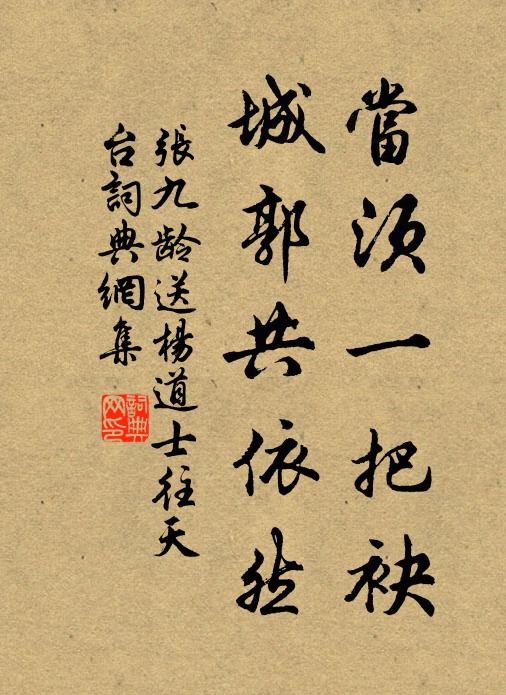 當須一把袂
城郭共依然
張九齡送楊道士往天
台詞典網集
詞典网印